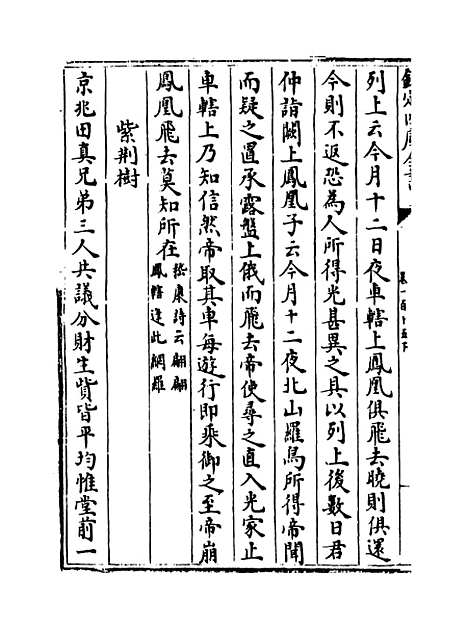 欽定四庫全書
卷一百十五下
列上云今月十二日夜車轄上鳳凰俱飛去曉則俱還
今則不返恐為人所得光甚異之具以列上後數日君
仲詣闕上鳳凰子云今月十二夜北山羅鳥所得帝聞
而疑之置承露盤上俄而飛去帝使尋之直入光家止
車轄上乃知信然帝取其車每遊行即乘御之至帝崩
鳳凰飛去莫知所在嵇康詩云翩翩
鳳轄逢此網羅
紫荆樹
京兆田真兄弟三人共議分財生貲皆平均惟堂前一